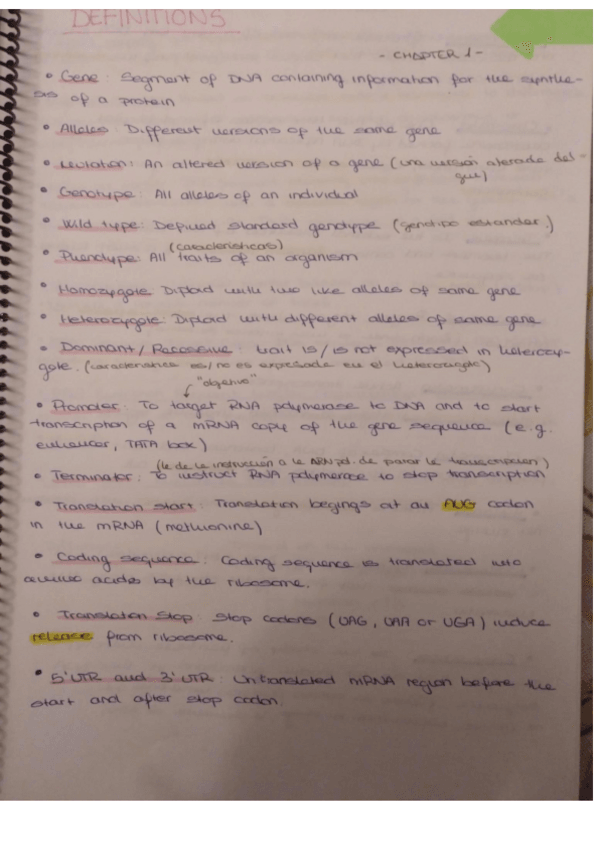 DEFINITIONS
- CHAPTER 1 -
• Gene: Segment of DNA containing information for the synthe-
sis of a protein
• Alleles: Different versions of the same gene
• Mutation: An altered version of a gene (una versión alterada del
gen)
• Genotype: All alleles of an individual
• Wild type: Defined standard genotype (genotipo estandar.)
(características)
• Phenotype: All traits of an organism
• Homozygote: Diploid with two like alleles of same gene
• Heterozygote: Diploid with different alleles of same gene
• Dominant / Recessive: trait is / is not expressed in heterozy-
gote. (característica es/no es expresada en el heterozigote)
"objetivo"
• Promoter: To target RNA polymerase to DNA and to start
transcription of a mRNA copy of the gene sequence (e.g.
enhancer, TATA box)
(le da la instrucción a la ARN pol. de parar la transcripcion)
• Terminator: To instruct RNA polymerase to stop transcription
• Translation start: Translation begings at an AUG codon
in the mRNA (methionine)
• Coding sequence: Coding sequence is translated into
amino acids by the ribosome.
• Translation Stop: Stop codons (UAG, UAA or UGA) induce
release from ribosome.
• 5'UTR and 3'UTR: Untranslated mRNA region before the
start and after stop codon.